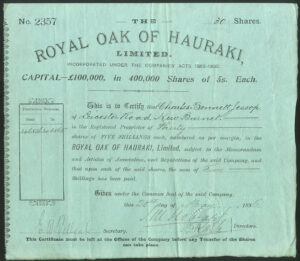 No. 2357 THE 30 Shares.
ROYAL OAK OF HAURAKI,
LIMITED.
INCORPORATED UNDER THE COMPANIES ACTS 1862-1890.
CAPITAL—£100,000, in 400,000 Shares of 5s. Each.
This is to Certify that Charles Bennett Jessop
of Leicester Road New Barnet
is the Registered Proprietor of Thirty
Shares of FIVE SHILLINGS each, numbered as per margin, in the
ROYAL OAK OF HAURAKI, Limited, subject to the Memorandum
and Articles of Association, and Regulations of the said Company, and
that upon each of the said shares, the sum of Five
Shillings has been paid.
Given under the Common Seal of the said Company
this day of 189
Directors.
Secretary.
This Certificate must be left at the Offices of the Company before any Transfer of the Shares
can take place.